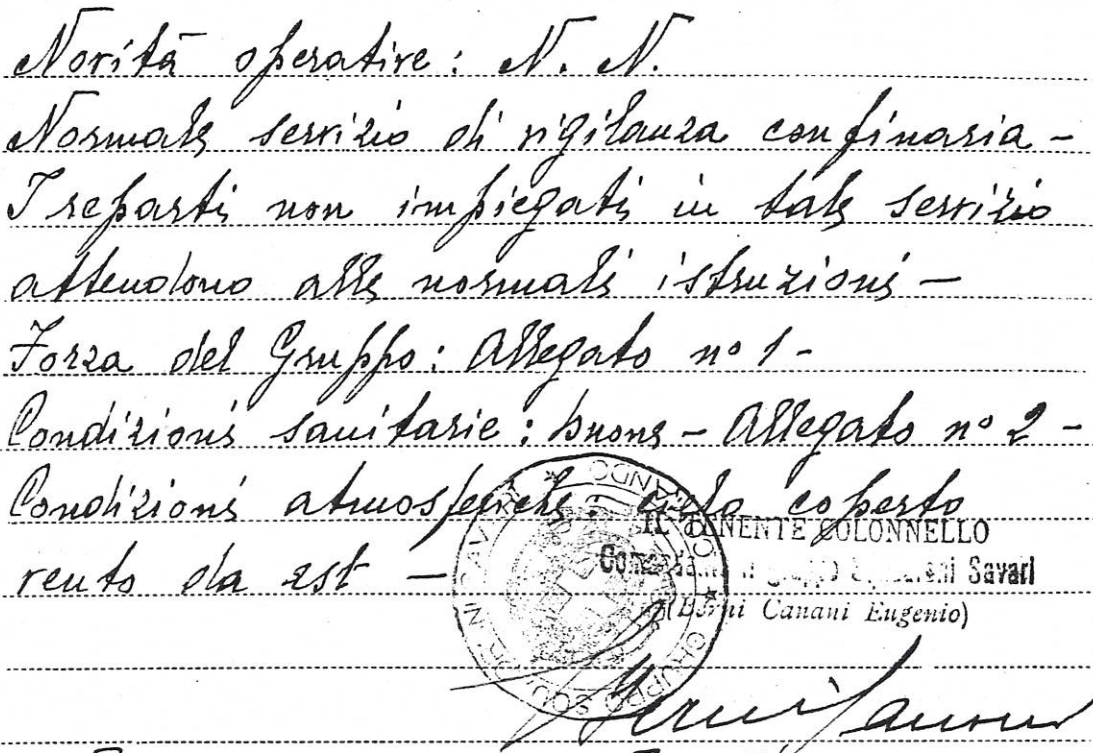 Novità operative: N. N.
Normale servizio di vigilanza confinaria -
I reparti non impiegati in tale servizio
attendono alle normali istruzioni -
Forza del Gruppo: Allegato n° 1 -
Condizioni sanitarie: buone - Allegato n° 2 -
Condizioni atmosferiche: cielo coperto
vento da est -
IL TENENTE COLONNELLO
Savari
(Berni Canani Eugenio)
COMANDO * GRUPPO SQUADRONI SAVARI *
Berni Canani